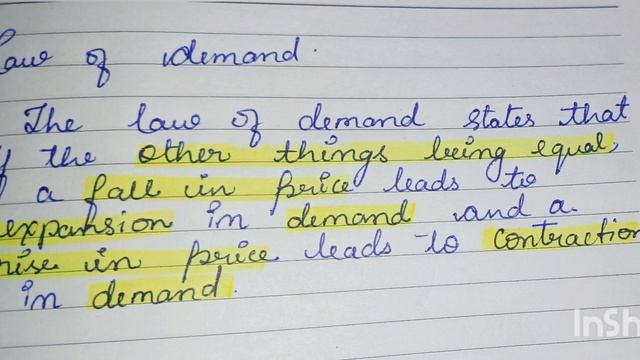 Law of demand.
The law of demand states that
if the other things being equal,
a fall in price leads to
expansion in demand and a
rise in price leads to contraction
in demand.
InSh